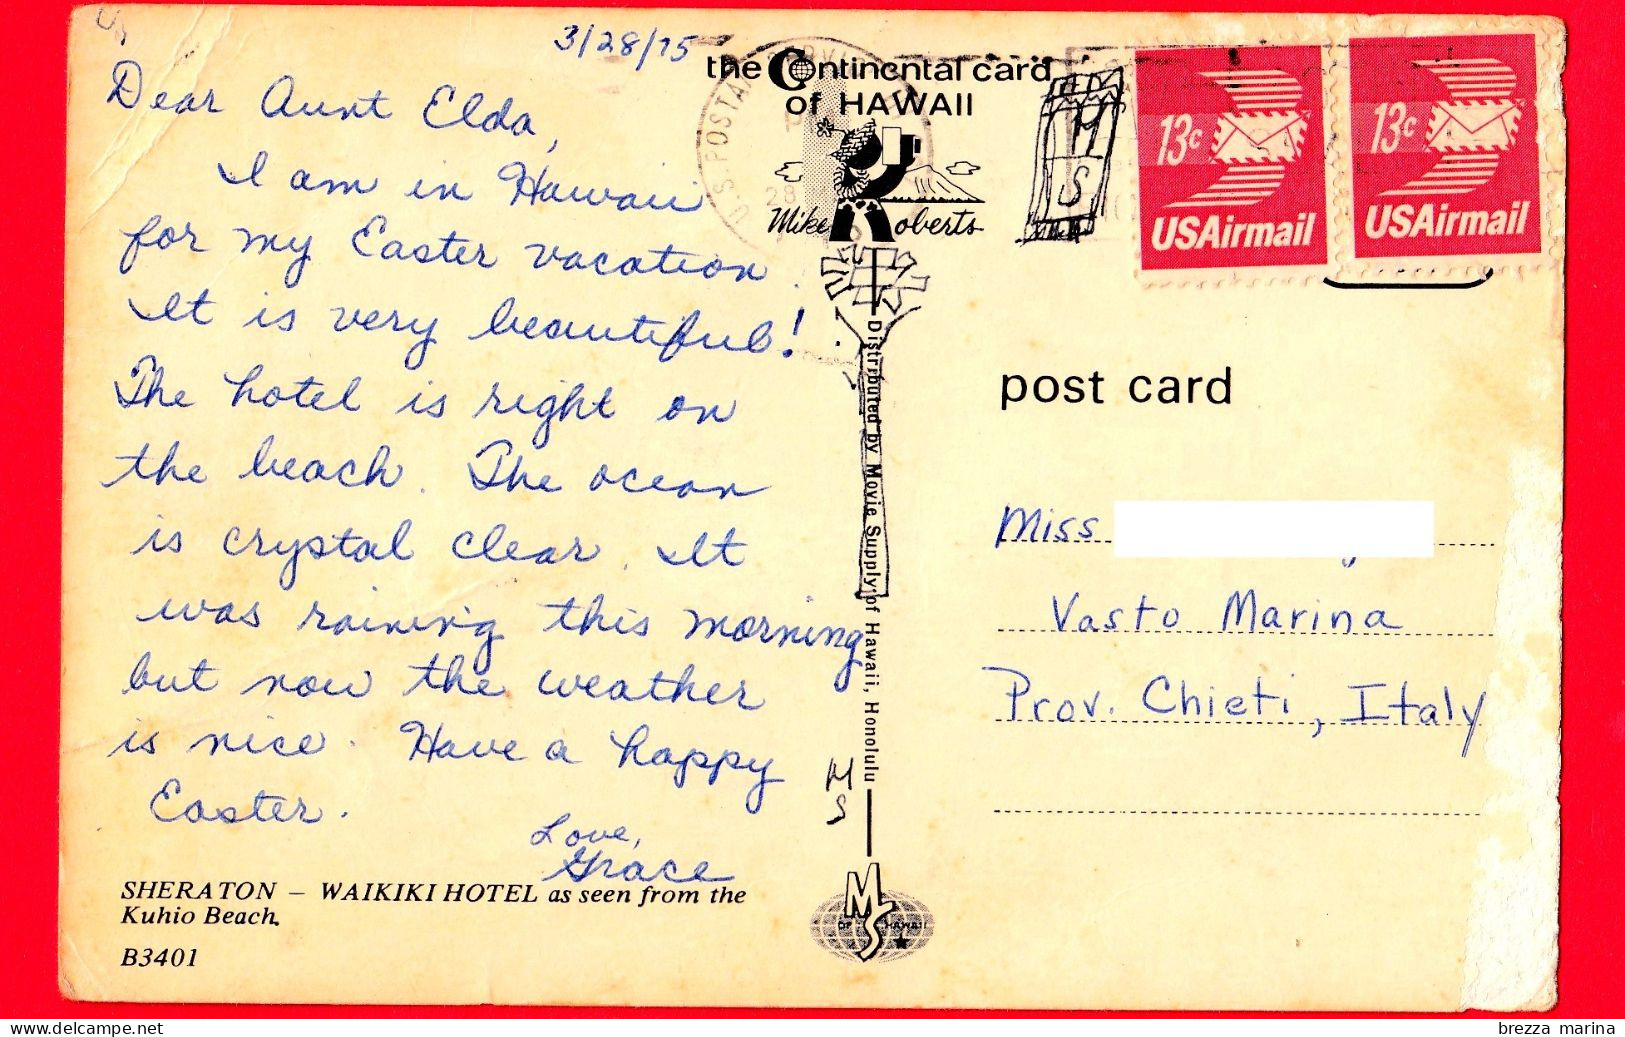 3/28/75
Dear Aunt Elda,
I am in Hawaii
for my Easter vacation.
It is very beautiful!
The hotel is right on
the beach. The ocean
is crystal clear. It
was raining this morning
but now the weather
is nice. Have a happy
Easter.
Love,
Grace
SHERATON – WAIKIKI HOTEL as seen from the
Kuhio Beach.
B3401
the Continental card
of HAWAII
Mike Roberts
U.S. POSTAL
28
Distributed by Movie Supply of Hawaii, Honolulu
M
S
MS
OF HAWAII
H
S
13c
USAirmail
13c
USAirmail
post card
Miss
Vasto Marina
Prov. Chieti, Italy
brezza marina
delcampe.net